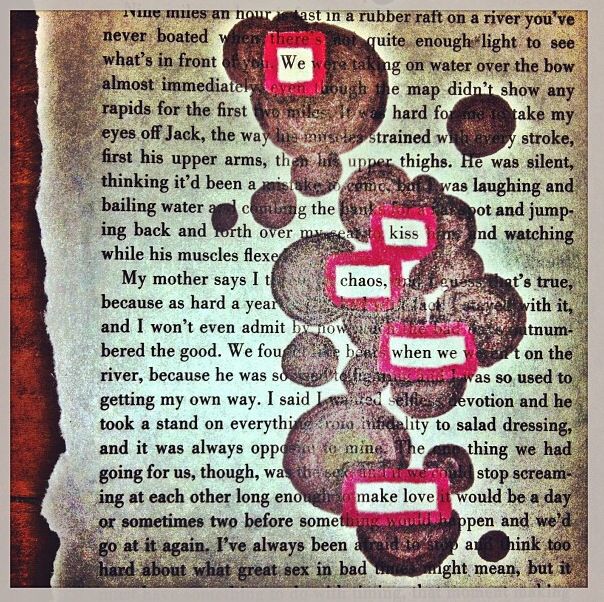 Nine miles an hour is fast in a rubber raft on a river you've
never boated when there's not quite enough light to see
what's in front of you. We were taking on water over the bow
almost immediately, even though the map didn't show any
rapids for the first two miles. It was hard for me to take my
eyes off Jack, the way his muscles strained with every stroke,
first his upper arms, then his upper thighs. He was silent,
thinking it'd been a mistake to come, but I was laughing and
bailing water and combing the bank for a spot and jump-
ing back and forth over my seat to kiss and watching
while his muscles flexe
My mother says I chaos, and I guess that's true,
because as hard a year with it,
and I won't even admit by now the bad outnum-
bered the good. We fought like bears when we weren't on the
river, because he was so used to fighting and I was so used to
getting my own way. I said I wanted selfless devotion and he
took a stand on everything from infidelity to salad dressing,
and it was always opposite to mine. The one thing we had
going for us, though, was the sex, and if we could stop scream-
ing at each other long enough to make love it would be a day
or sometimes two before something would happen and we'd
go at it again. I've always been afraid to stop and think too
hard about what great sex in bad times might mean, but it
with timing, that moment making